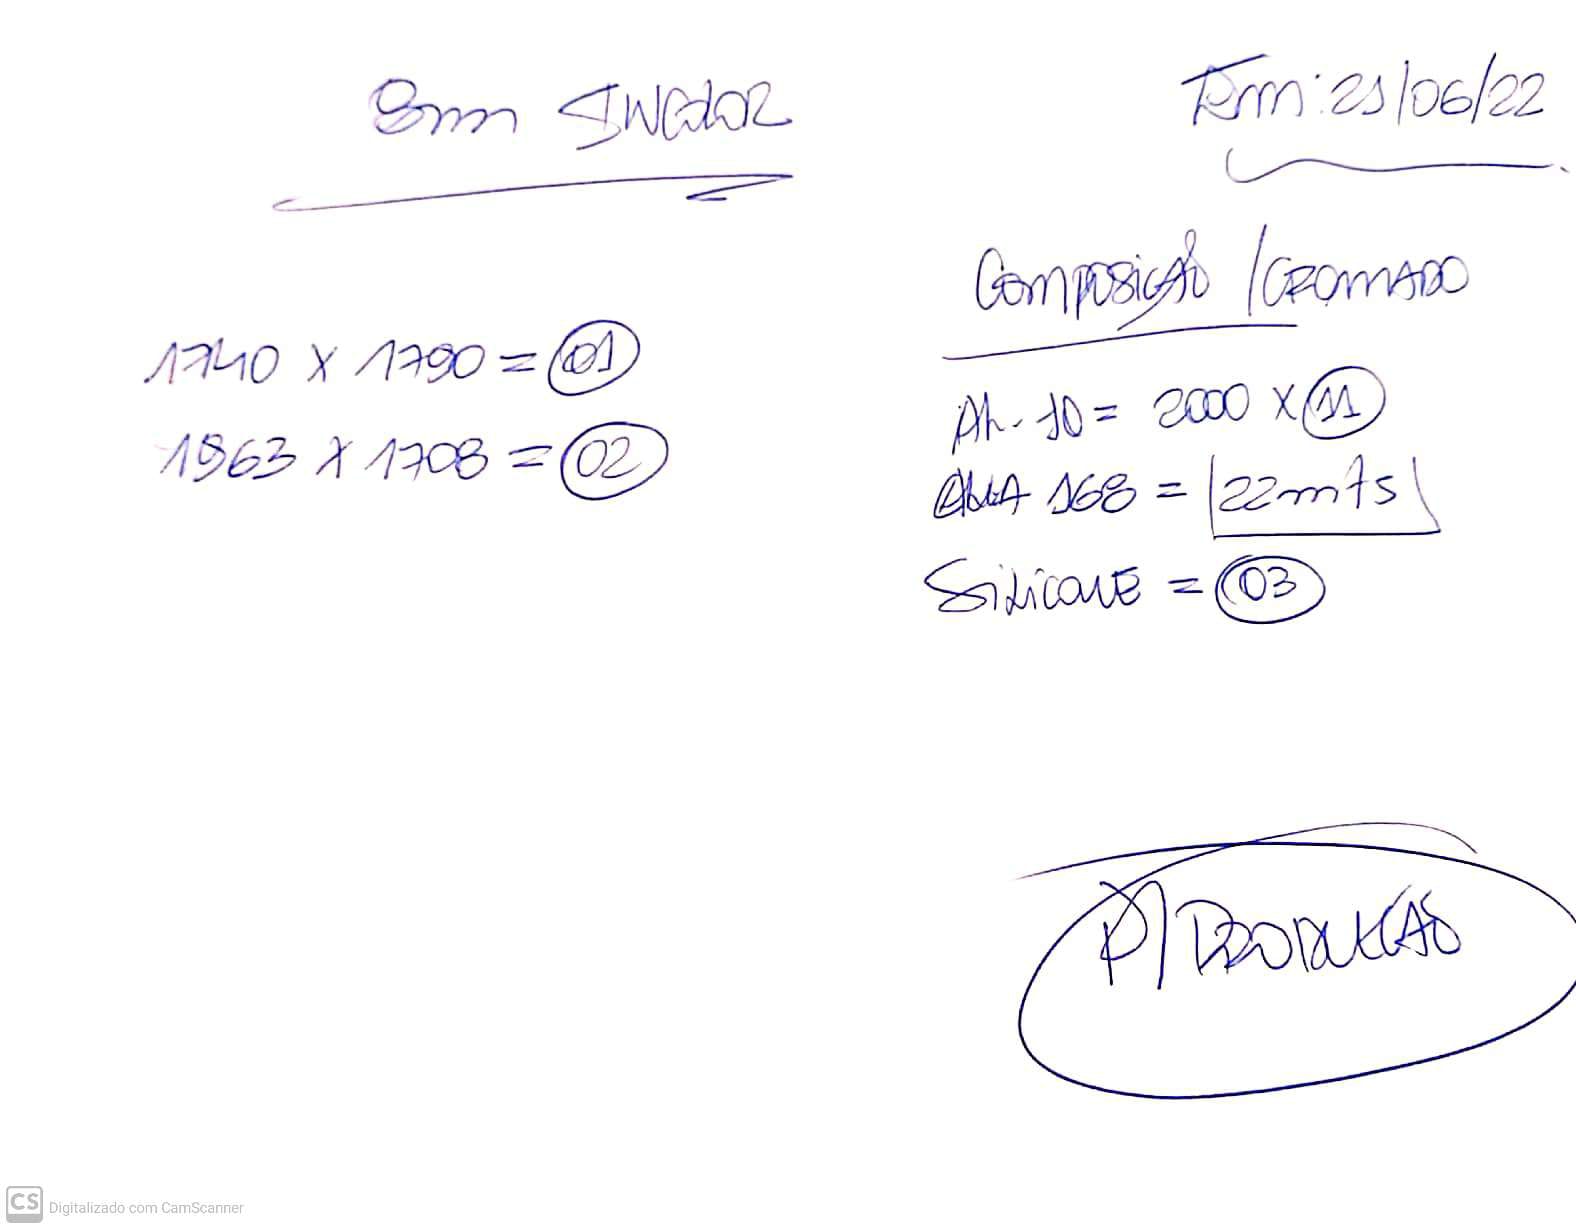 8mm INCOLOR
Tem: 21/06/22
1740 x 1790 = 01
1963 x 1708 = 02
Composição / CROMADO
AL-10 = 2000 x 11
168 = 22mts
Silicone = 03
P/ PRODUÇÃO
CS Digitalizado com CamScanner